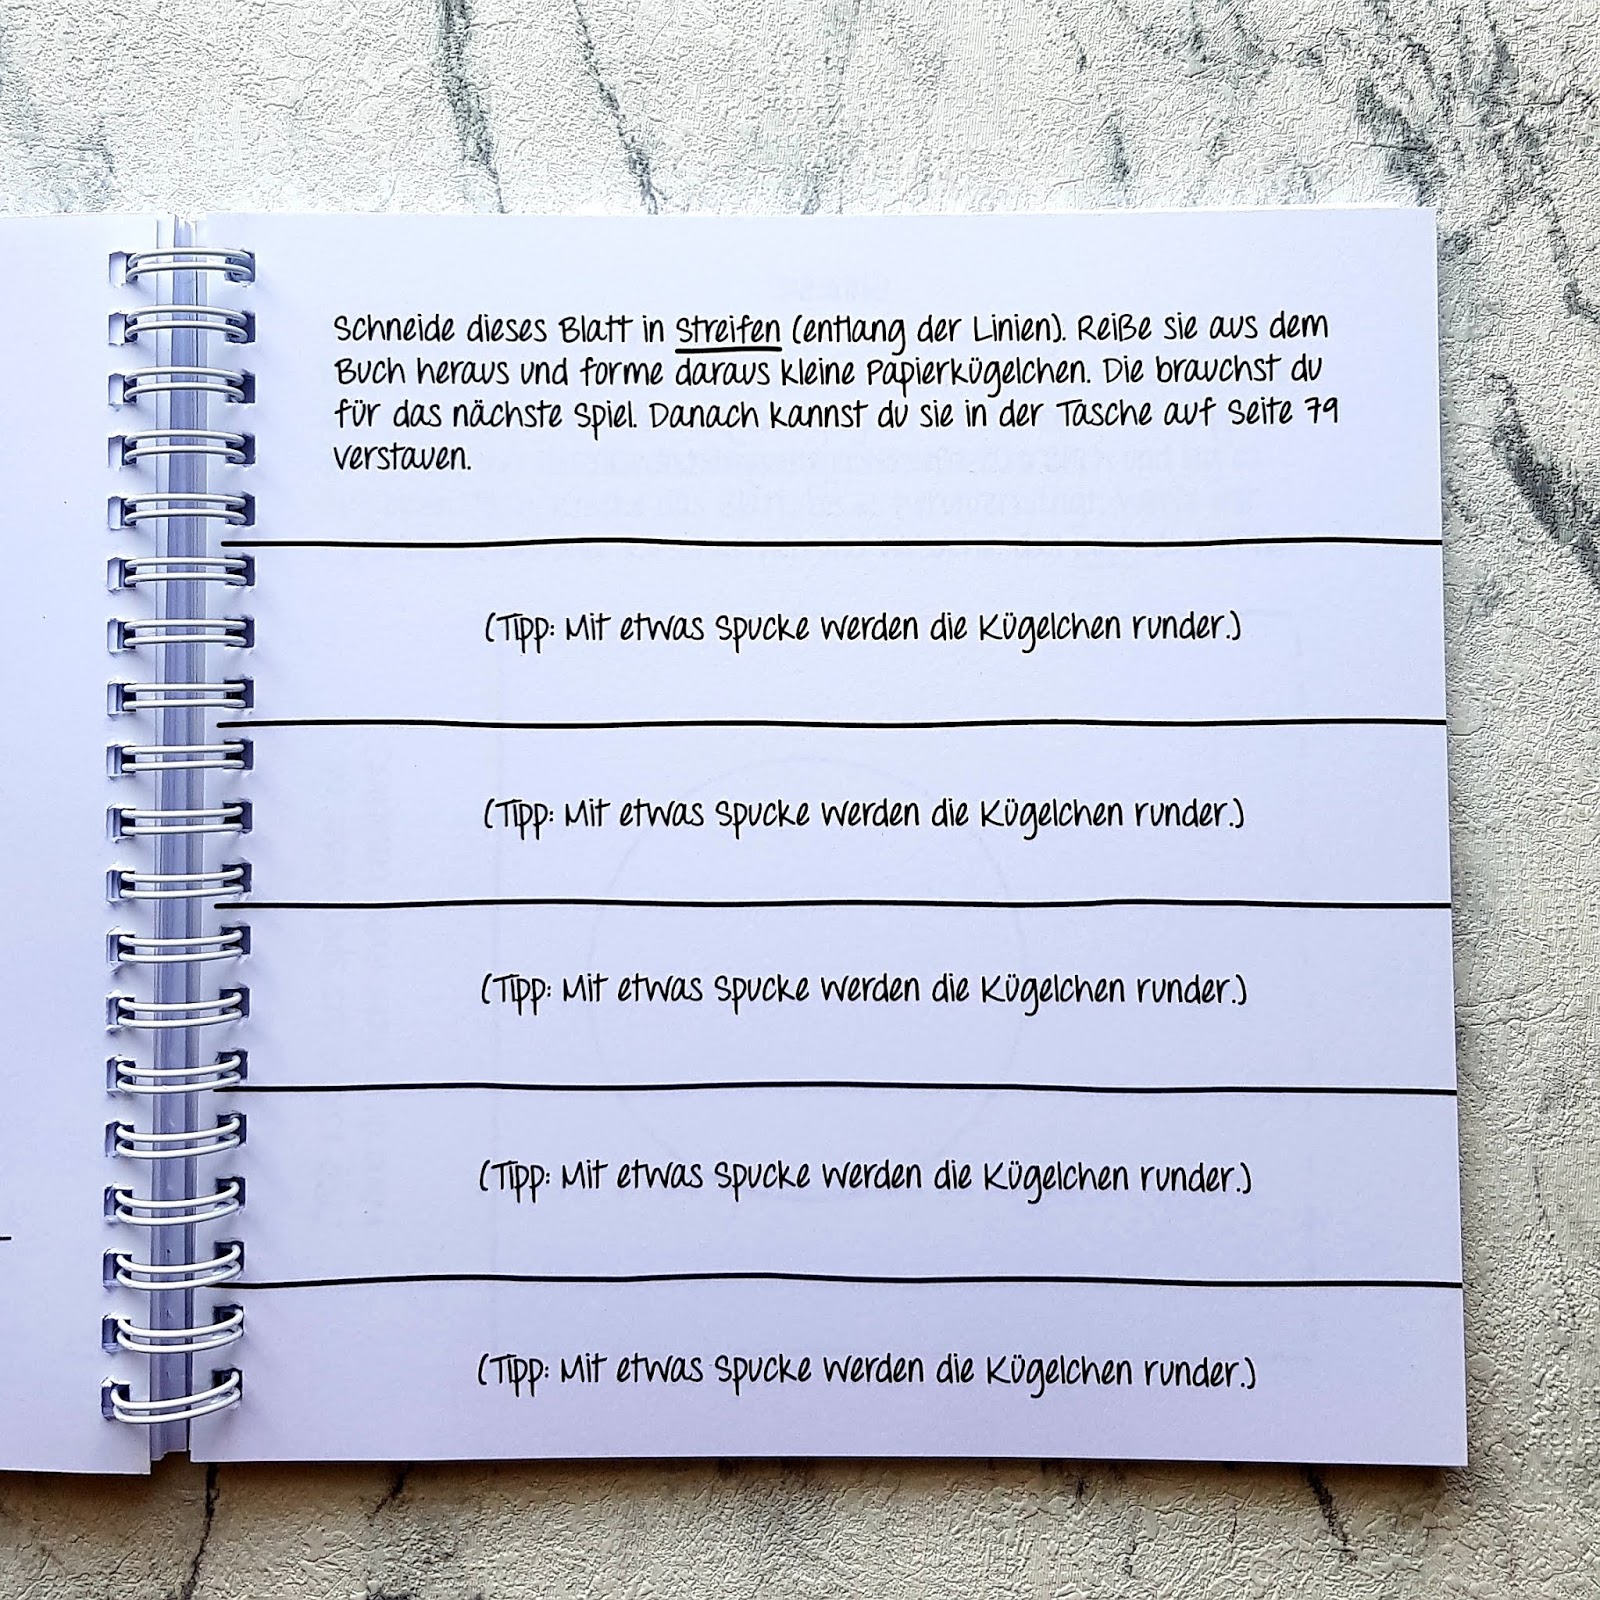 Schneide dieses Blatt in Streifen (entlang der Linien). Reiße sie aus dem
Buch heraus und forme daraus kleine Papierkügelchen. Die brauchst du
für das nächste Spiel. Danach kannst du sie in der Tasche auf Seite 79
verstauen.
(Tipp: Mit etwas Spucke werden die Kügelchen runder.)
(Tipp: Mit etwas Spucke werden die Kügelchen runder.)
(Tipp: Mit etwas Spucke werden die Kügelchen runder.)
(Tipp: Mit etwas Spucke werden die Kügelchen runder.)
(Tipp: Mit etwas Spucke werden die Kügelchen runder.)